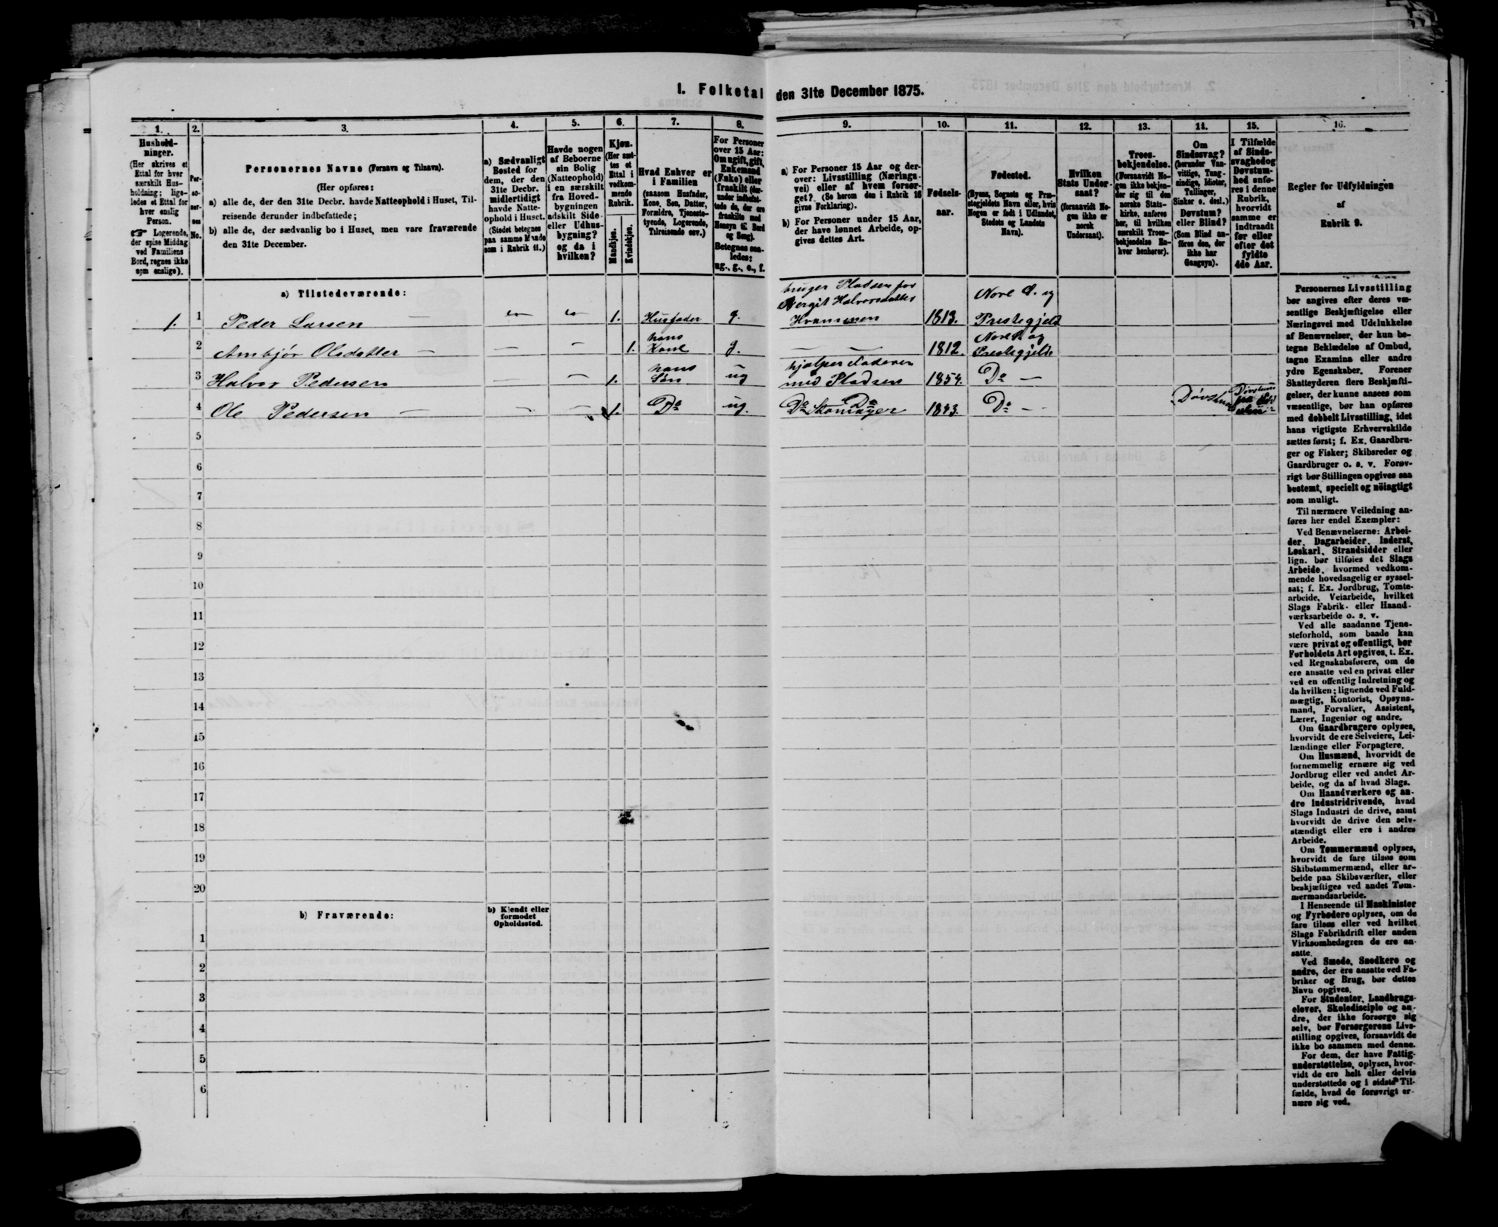 1. Folketal den 31te December 1875.
1. 2. 3. 4. 5. 6. 7. 8. 9. 10. 11. 12. 13. 14. 15. 16.
Hushold-
ninger.
(Her skrives et
Ettal for hver
særskilt Hus-
holdning; lige-
ledes et Ettal for
hver enslig
Person.
☞ Logerende,
der spise Middag
ved Familiens
Bord, regnes ikke
som enslige).
Per-
so-
ner-
nes
No.
Personernes Navne (Fornavn og Tilnavn).
(Her opføres:
a) alle de, der den 31te Decbr. havde Natteophold i Huset, Til-
reisende derunder indbefattede;
b) alle de, der sædvanlig bo i Huset, men vare fraværende
den 31te December.
a) Sædvanligt
Bosted for
dem, der den
31te Decbr.
midlertidigt
havde Natte-
ophold i Huset.
(Stedet betegnes
paa samme Maade
som i Rubrik 11.)
Havde nogen
af Beboerne
sin Bolig
(Natteophold)
i en særskilt
fra Hoved-
bygningen
adskilt Side-
eller Udhus-
bygning?
og da i
hvilken?
Kjøn.
(Her sæt-
tes et
Ettal i
vedkom-
mende
Rubrik.
Mandkjøn.
Kvindekjøn.
Hvad Enhver er
i Familien
(saasom Husfader,
Kone, Søn, Datter,
Forældre, Tjeneste-
tyende, Logerende,
Tilreisende osv.)
For Personer
over 15 Aar:
Om ugift, gift,
Enkemand
(Enke) eller
fraskilt (der-
under indbefat-
tede de, der ere
fraskilte med
Hensyn til Bord
og Seng).
Betegnes saa-
ledes:
ug., g., e., f.
a) For Personer 15 Aar og der-
over: Livsstilling (Nærings-
vei) eller af hvem forsør-
get? (Se herom den i Rubrik 16
givne Forklaring).
b) For Personer under 15 Aar,
der have lønnet Arbeide, op-
gives dettes Art.
Fødsels-
aar.
Fødested.
(Byens, Sognets og Præ-
stegjeldets Navn eller, hvis
Nogen er født i Udlandet,
Stedets og Landets
Navn).
Hvilken
Stats Under-
saat?
(forsaavidt No-
gen ikke er
norsk
Undersaat).
Troes-
bekjendelse.
(Forsaavidt No-
gen ikke bekjen-
der sig til den
norske Stats-
kirke, anføres
her, til hvilken
særskilt Troes-
bekjendelse En-
hver henhører).
Om
Sindssvag?
(herunder Van-
vittige, Tung-
sindige, Idioter,
Tullinger,
Sinker o. desl.)
Døvstum?
eller Blind?
(Som Blind an-
føres den, der
ikke har
Gangsyn).
I Tilfælde
af Sinds-
svaghed og
Døvstum-
hed anfø-
res i denne
Rubrik,
hvorvidt
samme er
indtraadt
før eller
efter det
fyldte
4de Aar.
Regler for Udfyldningen
af
Rubrik 9.
a) Tilstedeværende:
1. 1 Peder Larsen — 1. Husfader g. bruger Pladsen for Bergit Halvorsdatter 1813. Nore S. og Prestegjeld
2 Ambjør Olsdatter — — — 1. hans Kone g. — — 1812. Nore S. og Prestegjeld
3 Halvor Pedersen — — 1. hans Søn ug hjælper Faderen med Pladsen 1854. Do —
4 Ole Pedersen — — — 1. Do ug. Do Do Skomager 1843. Do — Døvstum
5
6
7
8
9
10
11
12
13
14
15
16
17
18
19
20
b) Fraværende:
b) Kjendt eller
formodet
Opholdssted.
1
2
3
4
5
6
Personernes Livsstilling
bør angives efter deres væ-
sentlige Beskjæftigelse eller
Næringsvei med Udelukkelse
af Benævnelser, der kun be-
tegne Beklædelse af Ombud,
tagne Examina eller andre
ydre Egenskaber. Forener
Skatteyderen flere Beskjæfti-
gelser, der kunne ansees som
væsentlige, bør han opføres
med dobbelt Livsstilling, idet
hans vigtigste Erhvervskilde
sættes først; f. Ex. Gaardbru-
ger og Fisker; Skibsreder og
Gaardbruger o. s. v. Forøv-
rigt bør Stillingen opgives saa
bestemt, specielt og nöiagtigt
som muligt.
Til nærmere Veiledning an-
føres her endel Exempler:
Ved Benævnelserne: Arbei-
der, Dagarbeider, Inderst,
Løskarl, Strandsidder eller
lign. bør tilføies det Slags
Arbeide, hvormed vedkom-
mende hovedsagelig er syssel-
sat; f. Ex. Jordbrug, Tomte-
arbeide, Veiarbeide, hvilket
Slags Fabrik- eller Haand-
værksarbeide o. s. v.
Ved alle saadanne Tjene-
steforhold, som baade kan
være privat og offentligt, bør
Forholdets Art opgives, t. Ex.
ved Regnskabsførere, om de
ere ansatte ved en privat eller
ved en offentlig Indretning og
da hvilken; lignende ved Fuld-
mægtig, Kontorist, Opsyns-
mand, Forvalter, Assistent,
Lærer, Ingeniør og andre.
Om Gaardbrugere oplyses,
hvorvidt de ere Selveiere, Lei-
lændinge eller Forpagtere.
Om Husmænd, hvorvidt de
fornemmelig ernære sig ved
Jordbrug eller ved andet Ar-
beide, og da af hvad Slags.
Om Haandværkere og an-
dre Industridrivende, hvad
Slags Industri de drive, samt
hvorvidt de drive den selv-
stændigt eller ere i andres
Arbeide.
Om Tømmermænd oplyses,
hvorvidt de fare tilsøs som
Skibstømmermænd, eller ar-
beide paa Skibsværfter, eller
beskjæftiges ved andet Tøm-
mermandsarbeide.
I Henseende til Maskinister
og Fyrbødere oplyses, om de
fare tilsøs eller ved hvilket
Slags Fabrikdrift eller anden
Virksomhedsgren de ere an-
satte.
Ved Smede, Snedkere og
andre, der ere ansatte ved Fa-
briker og Brug, bør dettes
Navn opgives.
For Studenter, Landbrugs-
elever, Skoledisciple og an-
dre, der ikke forsørge sig
selv, bør Forsørgerens Livs-
stilling opgives, forsaavidt de
ikke bo sammen med denne.
For dem, der have Fattig-
understøttelse, oplyses, hvor-
vidt de ere helt eller delvis
understøttede og i sidste Til-
fælde, hvad de forøvrigt er-
nære sig ved.